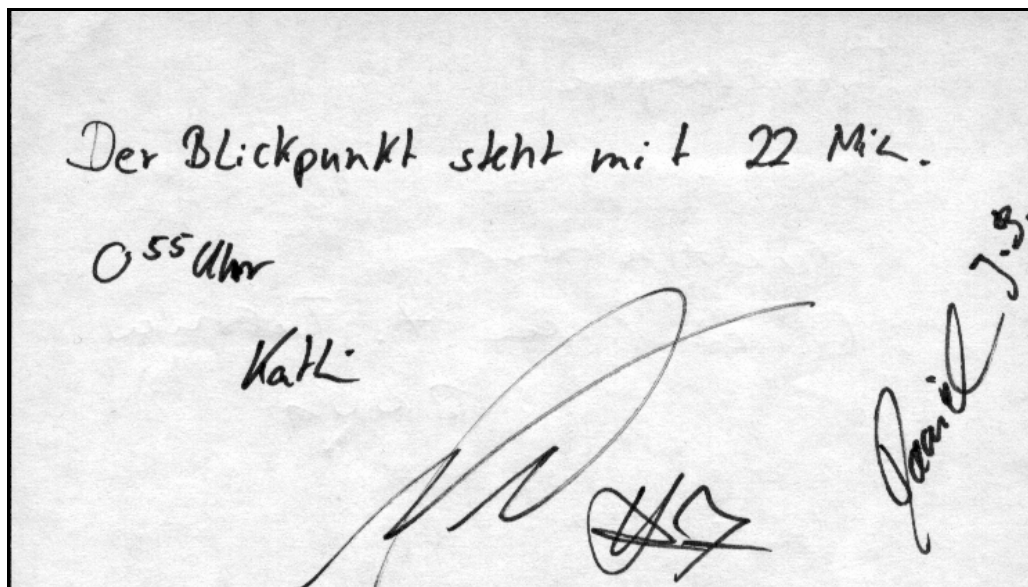 Der Blickpunkt steht mit 22 Min.
0⁵⁵ Uhr
Kathi
Daniel J.B.